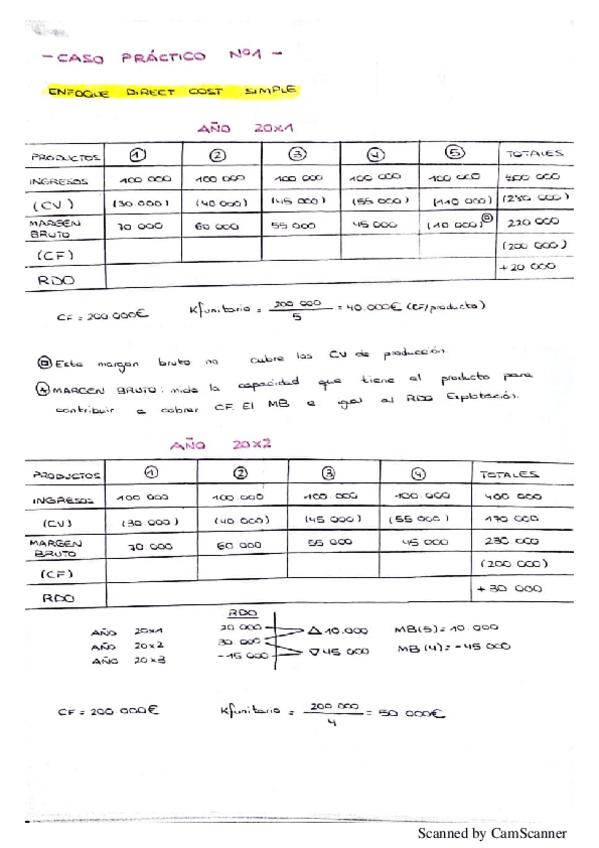 - CASO PRÁCTICO Nº1 -
ENFOQUE DIRECT COST SIMPLE
AÑO 20X1
PRODUCTOS 1 2 3 4 5 TOTALES
INGRESOS 100 000 100 000 100 000 100 000 100 000 500 000
(CV) (30 000) (40 000) (45 000) (55 000) (110 000) (280 000)
MARGEN BRUTO 70 000 60 000 55 000 45 000 (10 000) 220 000
(CF) (200 000)
RDO +20 000
CF = 200 000€ Kfunitario = 200 000 / 5 = 40.000€ (CF/producto)
Este margen bruto no cubre los CV de producción.
MARGEN BRUTO: mide la capacidad que tiene el producto para
contribuir a cobrar CF. El MB e igal al RDO Explotación.
AÑO 20X2
PRODUCTOS 1 2 3 4 TOTALES
INGRESOS 100 000 100 000 100.000 100.000 400 000
(CV) (30 000) (40 000) (45 000) (55 000) 170 000
MARGEN BRUTO 70.000 60 000 55 000 45 000 230 000
(CF) (200 000)
RDO +30 000
RDO
AÑO 20X1 20 000 △ 10.000 MB(5) = 10.000
AÑO 20X2 30 000 ▽ 45 000 MB(4) = -45 000
AÑO 20X3 -15 000
CF = 200 000€ Kfunitario = 200 000 / 4 = 50 000€
Scanned by CamScanner